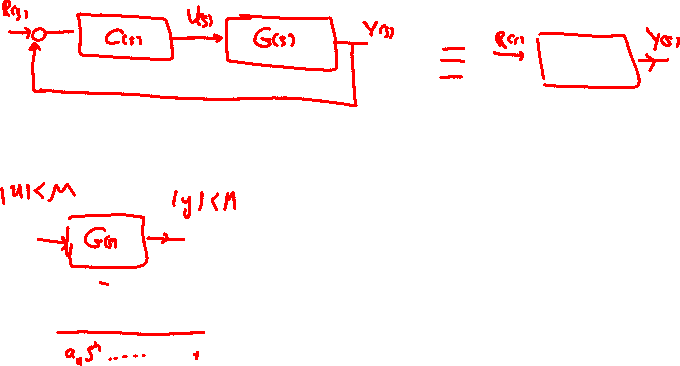 R(s) U(s) Y(s)
C(s) G(s) ≡ R(s) Y(s)
|u|<M |y|<M
G(s)
aₙsⁿ .....